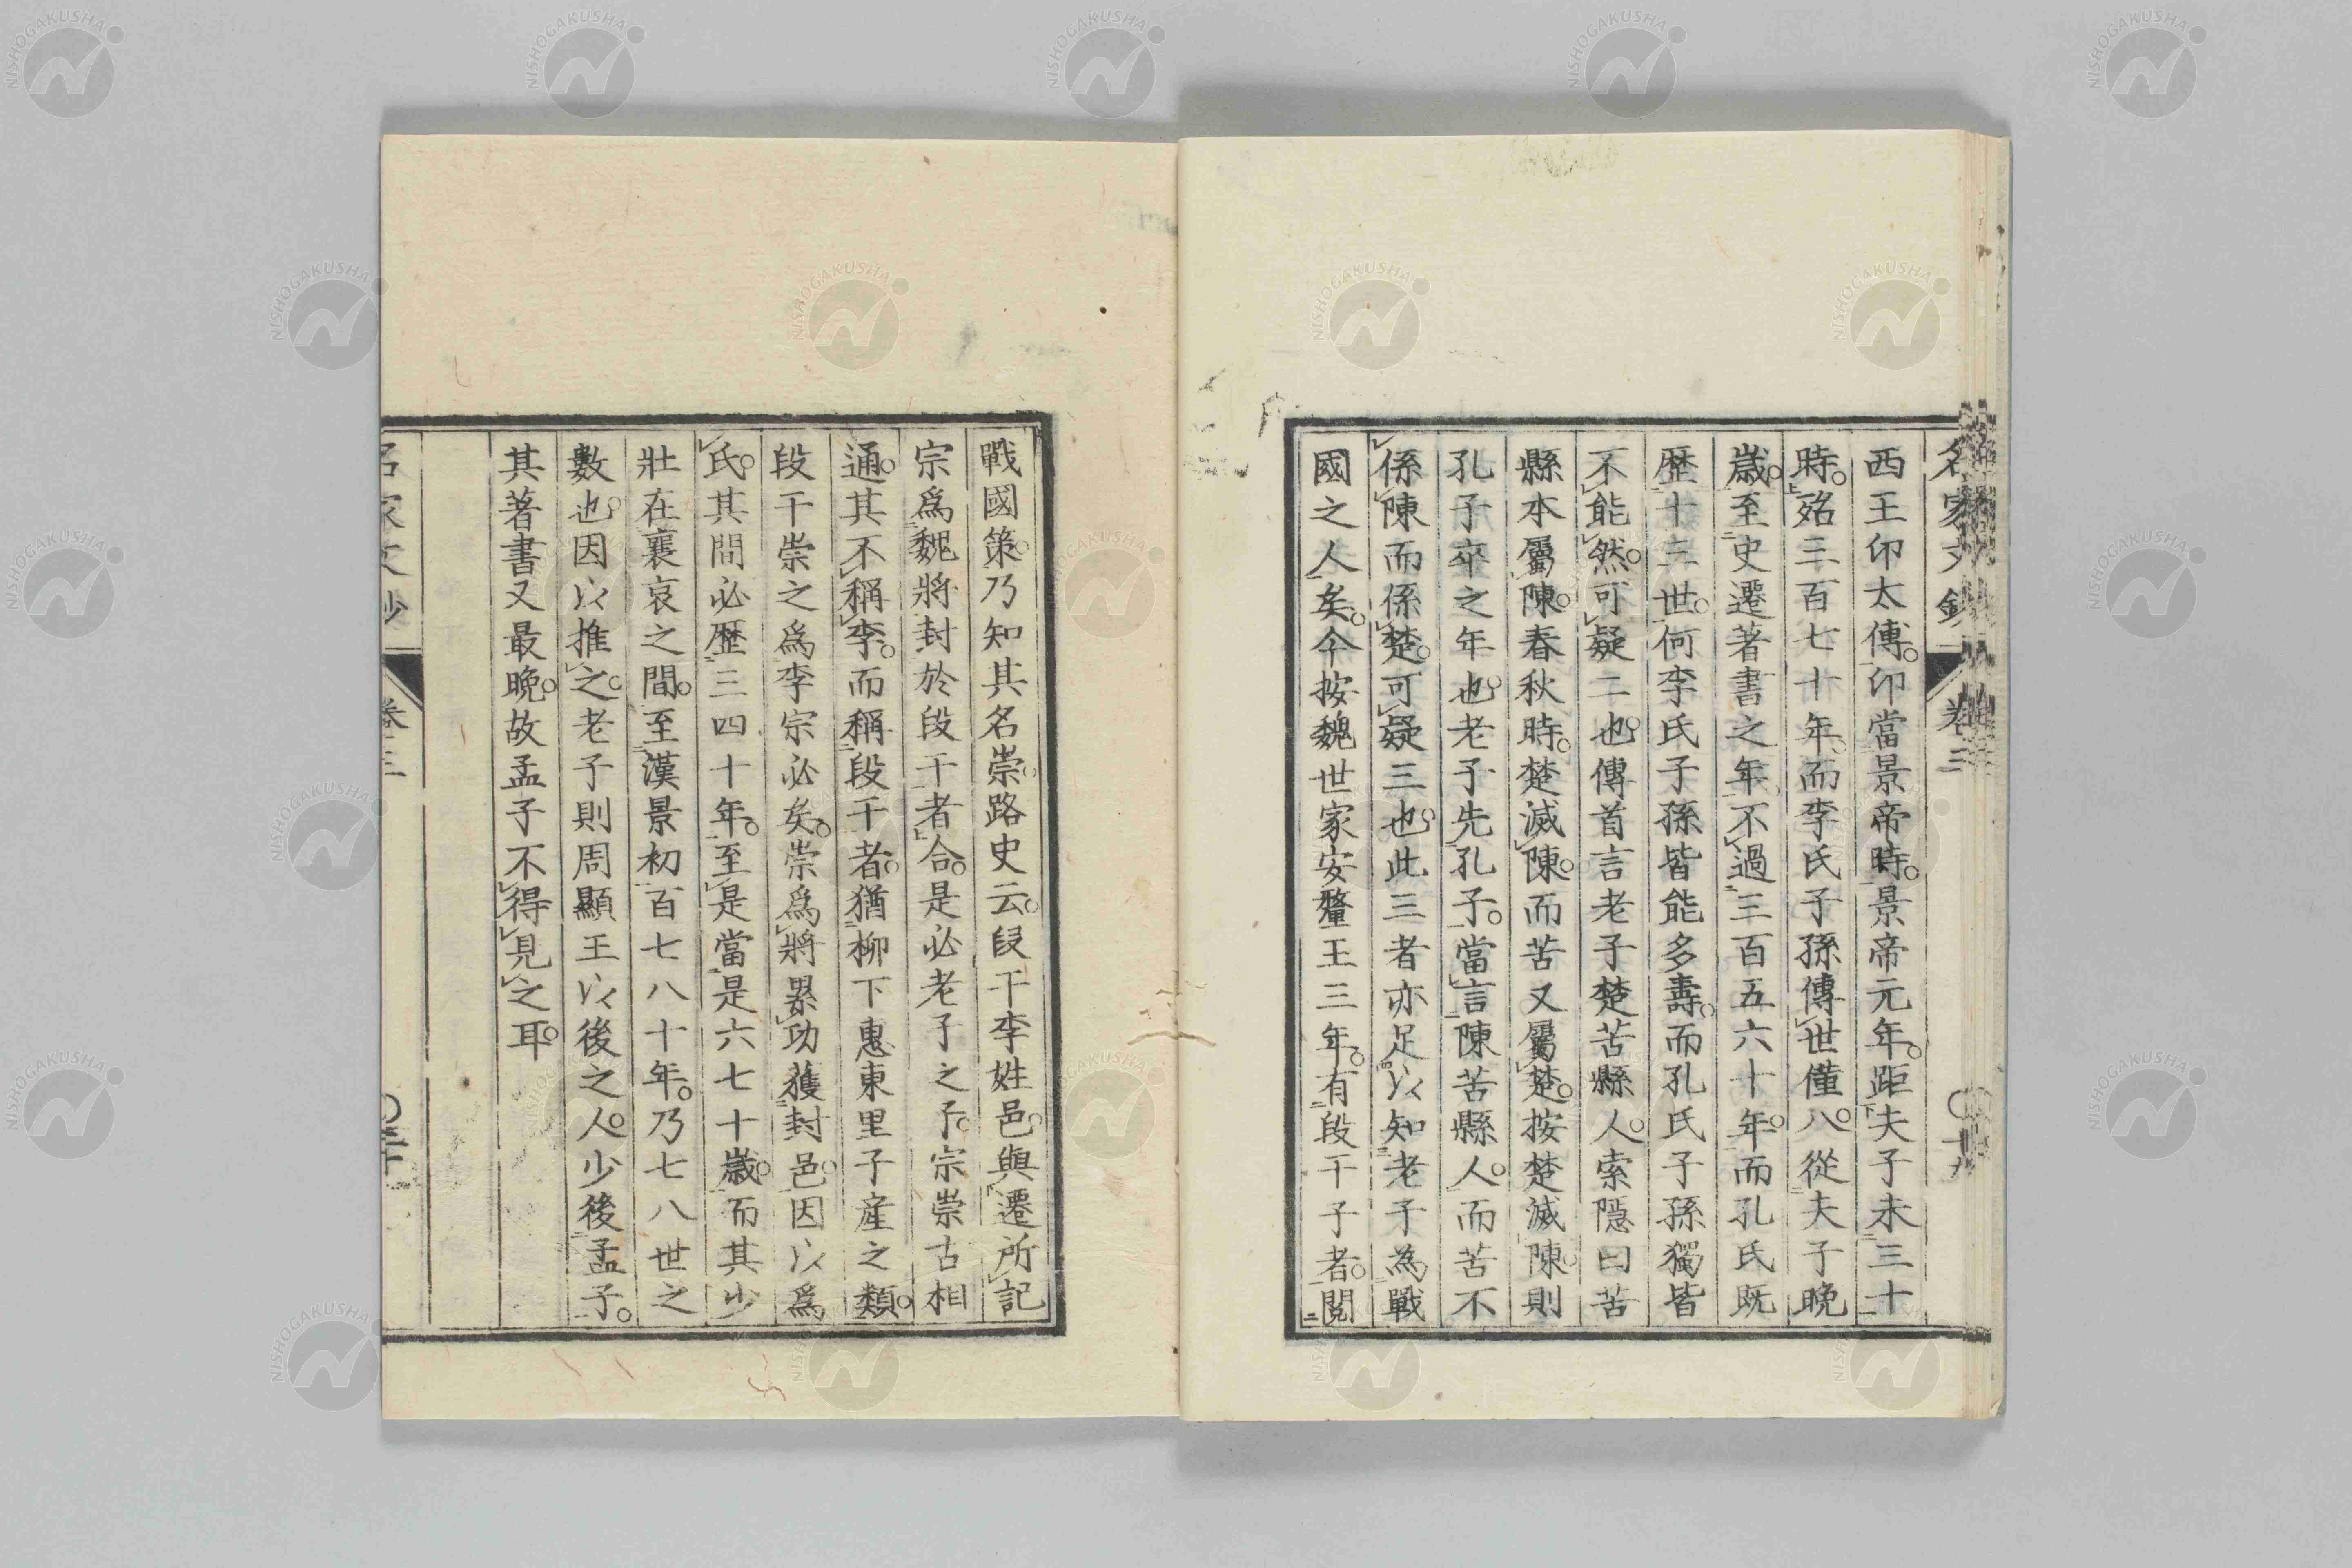 名家文鈔 卷三 〇十九
西王卬太傅。卬當景帝時。景帝元年。距夫子未三十
時。殆三百七十年。而李氏子孫傳世僅八。從夫子晚
歲。至史遷著書之年。不過三百五六十年。而孔氏既
歷十三世。何李氏子孫皆能多壽。而孔氏子孫獨皆
不能然。可疑二也。傳首言老子楚苦縣人。索隱曰苦
縣本屬陳。春秋時。楚滅陳。而苦又屬楚。按楚滅陳。則
孔子卒之年也。老子先孔子。當言陳苦縣人。而苦不
係陳而係楚。可疑三也。此三者亦足以知老子為戰
國之人矣。今按魏世家安釐王三年。有段干子者。閱
戰國策。乃知其名崇。路史云。段干李姓邑。與遷所記
宗爲魏將封於段干者合。是必老子之子。宗崇古相
通。其不稱李。而稱段干者。猶柳下惠東里子產之類。
段干崇之爲李宗必矣。崇爲將累功獲封邑。因以爲
氏。其間必歷三四十年。至是當是六七十歲。而其少
壯在襄哀之間。至漢景初百七八十年。乃七八世之
數也。因以推之。老子則周顯王以後之人。少後孟子。
其著書又最晚。故孟子不得見之耳。
名家文鈔 卷三 〇二十
NISHOGAKUSHA